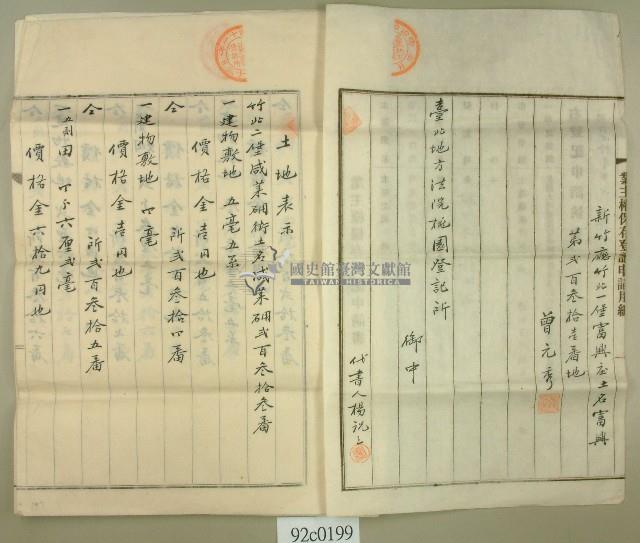 業主權保存登記申請用紙
新竹廳竹北一堡富興庄土名富興
第貳百叁拾壹番地
曾元秀
臺北地方法院桃園登記所
御中
代書人楊祝三
土地表示
竹北二堡咸菜硼街土名咸菜硼貳百叁拾叁番
一建物敷地 五毫五糸
價格金壹円也
仝 所貳百叁拾四番
一建物敷地 四毫
價格金壹円也
仝 所貳百叁拾五番
價格金六拾九円也
國史館臺灣文獻館
TAIWAN HISTORICA
92c0199